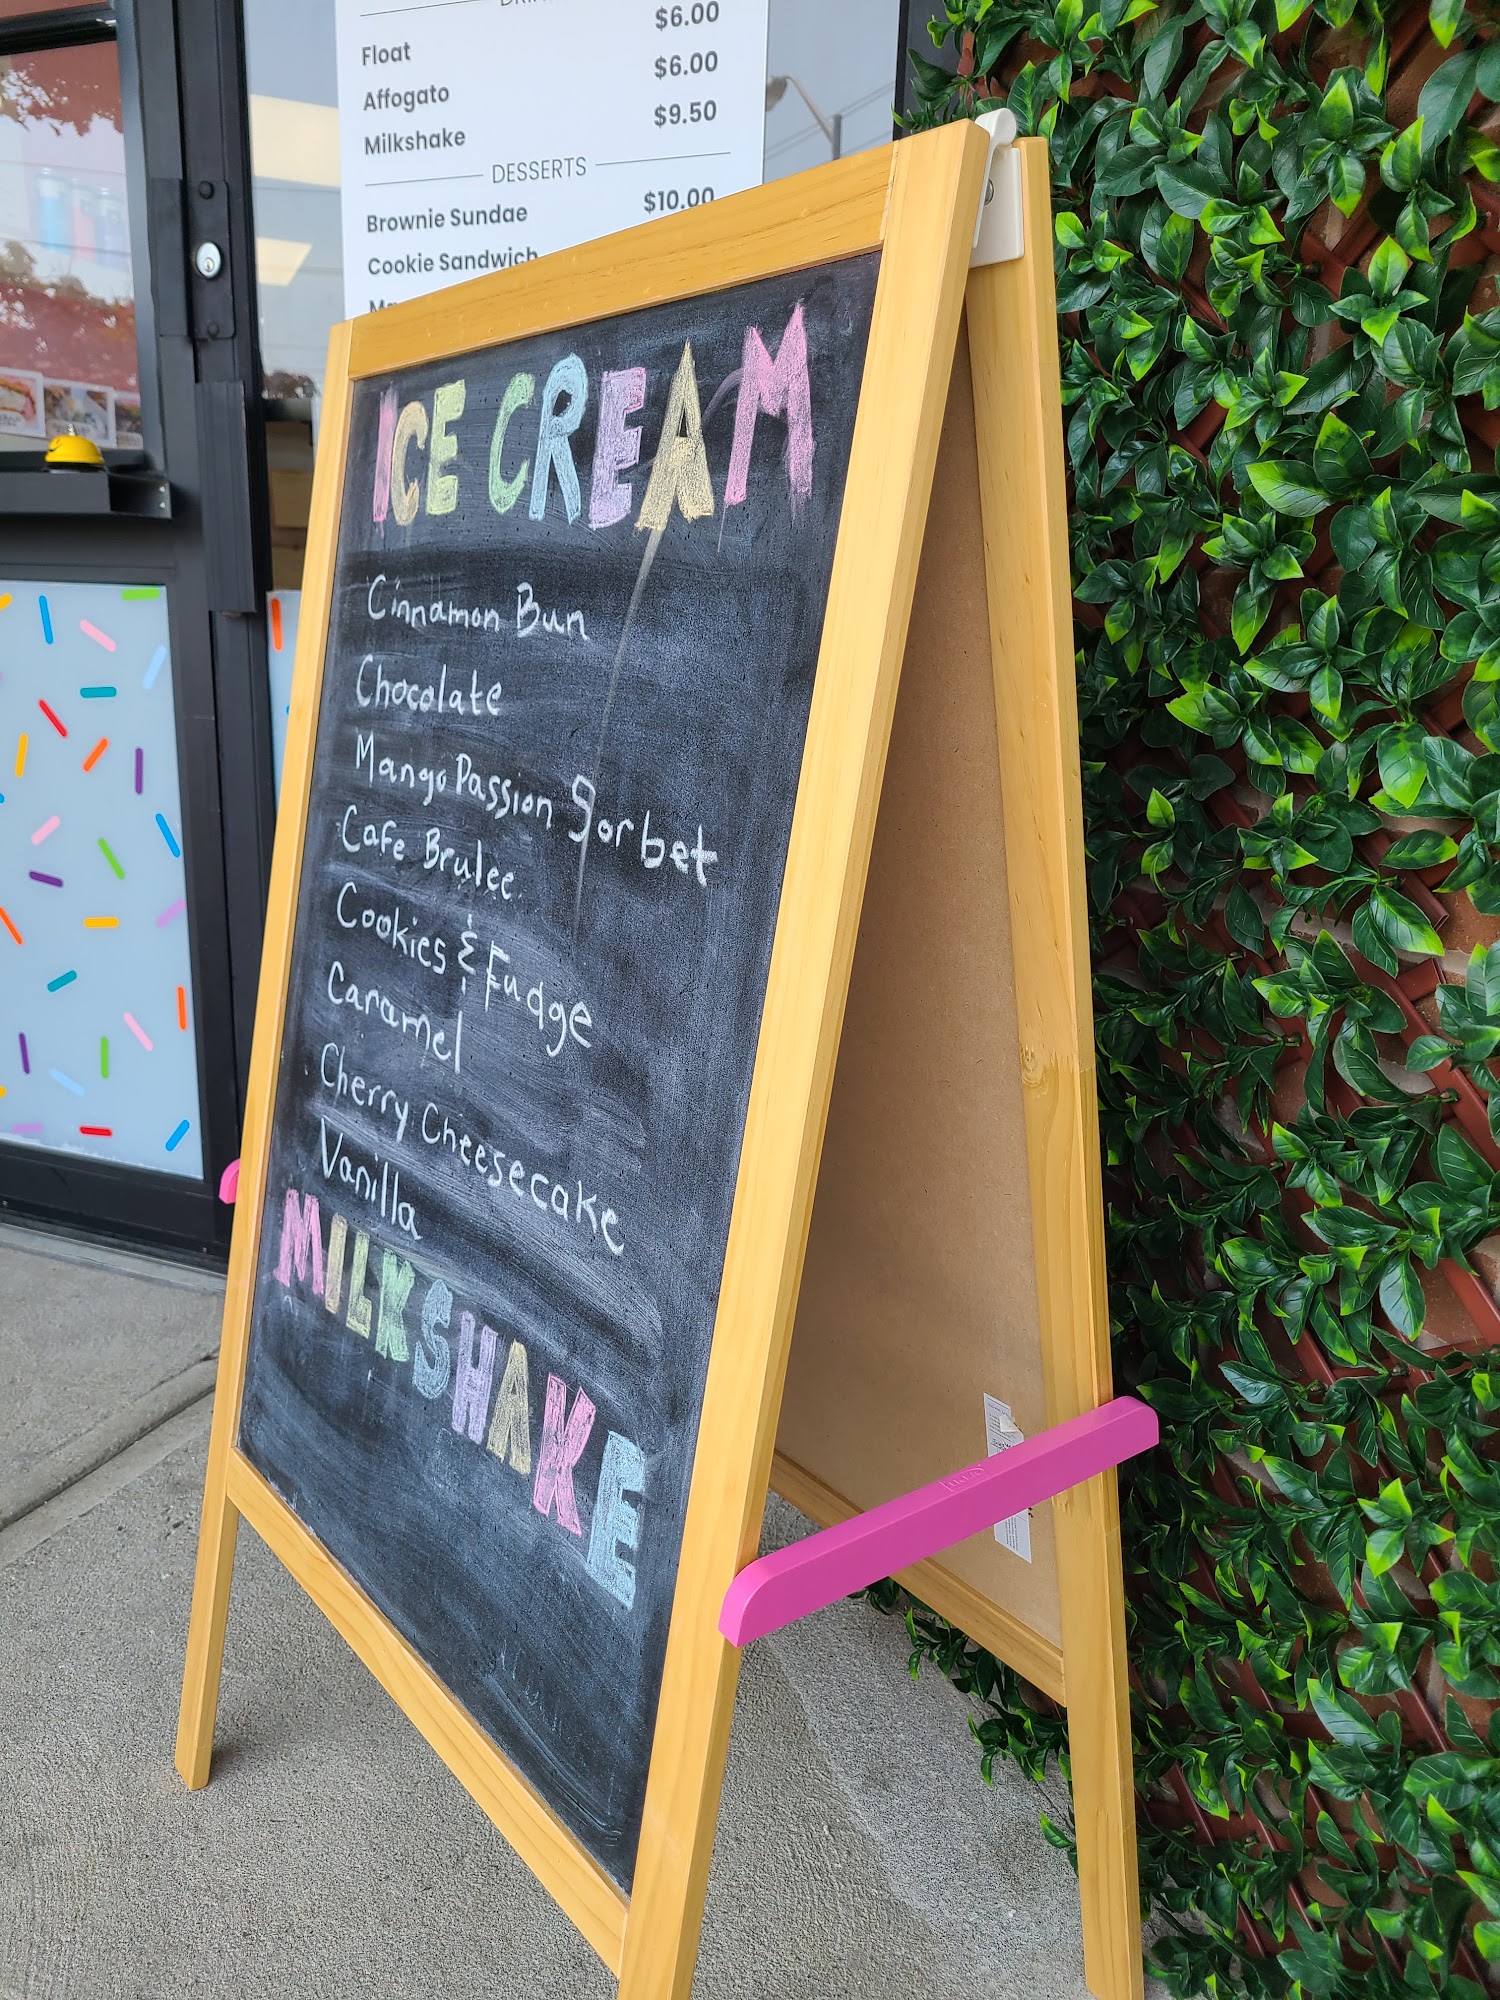 $6.00
Float $6.00
Affogato $9.50
Milkshake
DESSERTS
Brownie Sundae $10.00
Cookie Sandwich
ICE CREAM
Cinnamon Bun
Chocolate
Mango Passion Sorbet
Cafe Brulee
Cookies & Fudge
Caramel
Cherry Cheesecake
Vanilla
MILKSHAKE